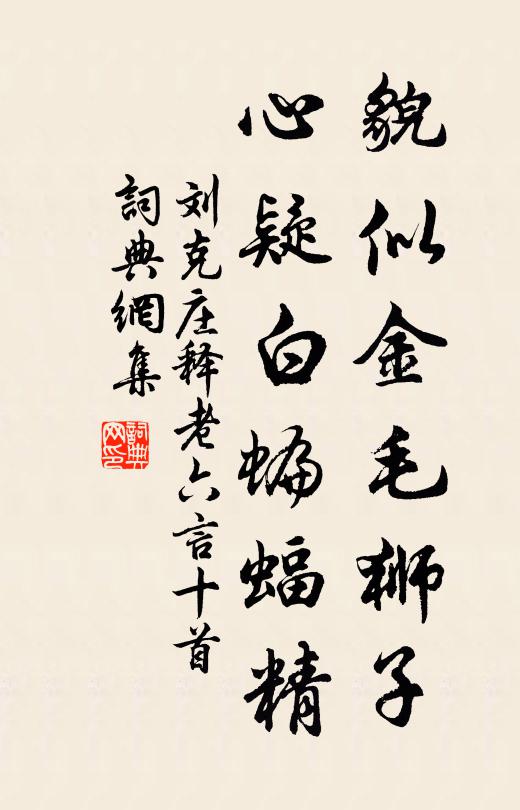 貌似金毛狮子
心疑白蝙蝠精
刘克庄释老六言十首
詞典網集
詞典网印